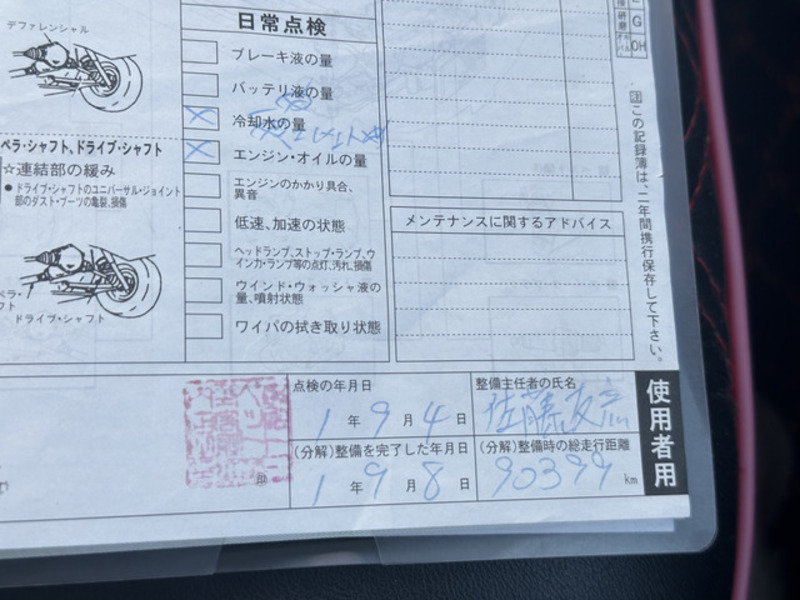 デファレンシャル
ペラ・シャフト、ドライブ・シャフト
☆連結部の緩み
●ドライブ・シャフトのユニバーサル・ジョイント
部のダスト・ブーツの亀裂、損傷
ドライブ・シャフト
日常点検
ブレーキ液の量
バッテリ液の量
冷却水の量
エンジン・オイルの量
エンジンのかかり具合、
異音
低速、加速の状態
ヘッドランプ、ストップ・ランプ、ウ
インカ・ランプ等の点灯、汚れ、損傷
ウインド・ウォッシャ液の
量、噴射状態
ワイパの拭き取り状態
研磨 G
OH
メンテナンスに関するアドバイス
注 この記録簿は、二年間携行保存して下さい。
点検の年月日
1年9月4日
整備主任者の氏名
佐藤
(分解)整備を完了した年月日
1年9月8日
(分解)整備時の総走行距離
90399 km
印
使用者用